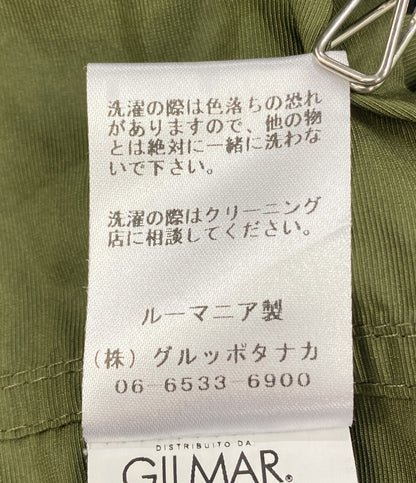 洗濯の際は色落ちの恐れ
がありますので、他の物
とは絶対に一緒に洗わな
いで下さい。
洗濯の際はクリーニング
店に相談してください。
ルーマニア製
(株) グルッポタナカ
06-6533-6900
DISTRIBUITO DA
GILMAR®